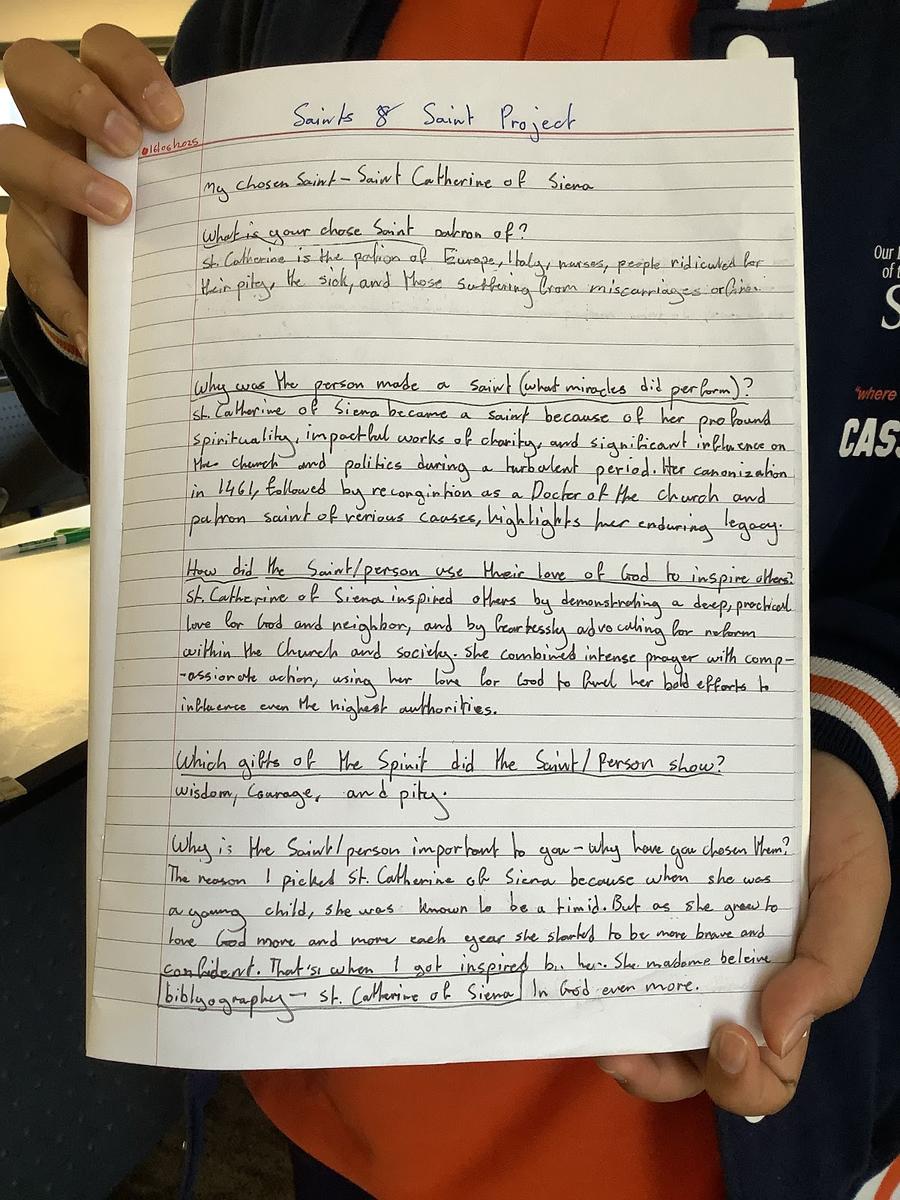 Saints & Saint Project
01/05/2025
My chosen Saint - Saint Catherine of Siena
What is your chose Saint patron of?
St. Catherine is the patron of Europe, Italy, nurses, people ridiculed for
their pity, the sick, and those suffering from miscarriages or fire.
Why was the person made a saint (what miracles did perform)?
St. Catherine of Siena became a saint because of her profound
spirituality, impactful works of charity, and significant influence on
the church and politics during a turbulent period. Her canonization
in 1461, followed by recongintion as a Doctor of the church and
patron saint of verious causes, highlights her enduring legacy.
How did the Saint/person use their love of God to inspire others?
St. Catherine of Siena inspired others by demonstrating a deep, practical
love for God and neighbor, and by fearlessly advocating for reform
within the Church and society. She combined intense prayer with comp-
-assionate action, using her love for God to fuel her bold efforts to
influence even the highest authorities.
Which gifts of the Spirit did the Saint/Person show?
wisdom, Courage, and pity.
Why is the Saint/person important to you - why have you chosen them?
The reason I picked St. Catherine of Siena because when she was
a young child, she was known to be a timid. But as she grew to
love God more and more each year she started to be more brave and
confident. That's when I got inspired by her. She madame beleive
biblyography - St. Catherine of Siena In God even more.
Our
of
S
"where
CAS